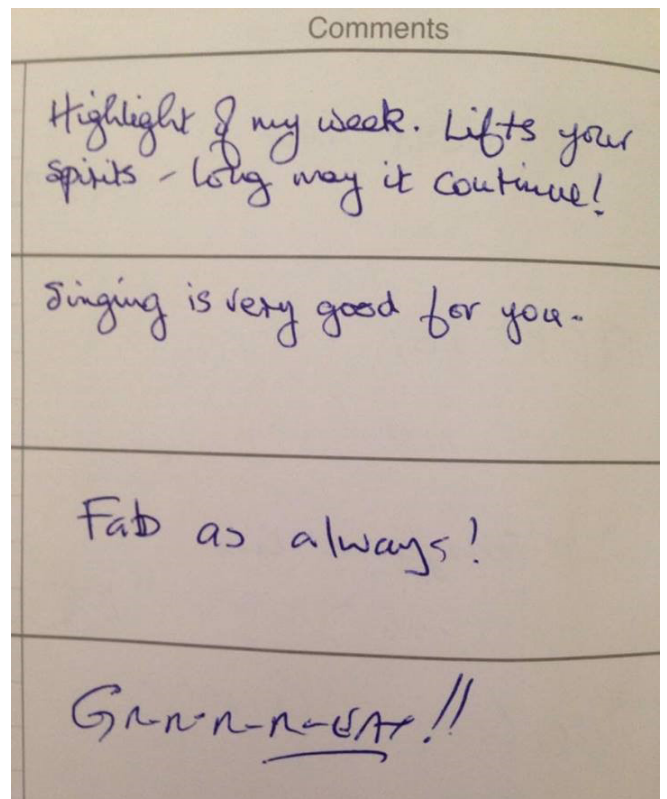 Comments
Highlight of my week. Lifts your
spirits - long may it continue!
Singing is very good for you.
Fab as always!
Gr-r-r-r-EAT!!